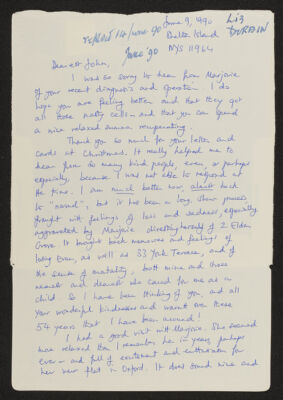 June 9, 1990
Liz
DURBIN
Shelter Island
NYS 11964
June '90
Dearest John,
I was so sorry to hear from Marjorie
of your recent diagnosis and operation. I do
hope you are feeling better and that they got
all those nasty cells and that you can spend
a nice relaxed summer recuperating.
Thank you so much for your letter and
cards at Christmas. It really helped me to
hear from so many kind people, even or perhaps
especially because I was not able to respond at
the time. I am much better now, almost back
to "normal", but it has been a long, slow process
fraught with feelings of loss and sadness, especially
aggravated by Marjorie divesting herself of 2 Elden
Grove. It brought back memories and feelings of
losing Evan, as well as 33 York Terrace, and of
the sense of mortality, both mine and those
nearest and dearest who cared for me as a
child. So I have been thinking of you, and all
your wonderful kindnesses and warmth over these
54 years that I have been around!
I had a good visit with Marjorie. She seemed
more relaxed than I remember her in years, perhaps
ever - and full of excitement and enthusiasm for
her new flat in Oxford. It does sound nice and